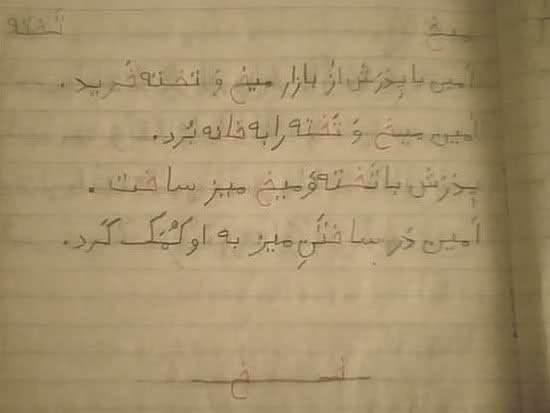 میخ تَخته
اَمین با پِدَرَش اَز بازار میخ وَ تَخته خَرید.
اَمین میخ وَ تَخته را به خانه بُرد.
پِدَرَش با تَخته وَ میخ میز ساخت.
اَمین دَر ساختَنِ میز به او کُمَک کَرد.
خـ خ